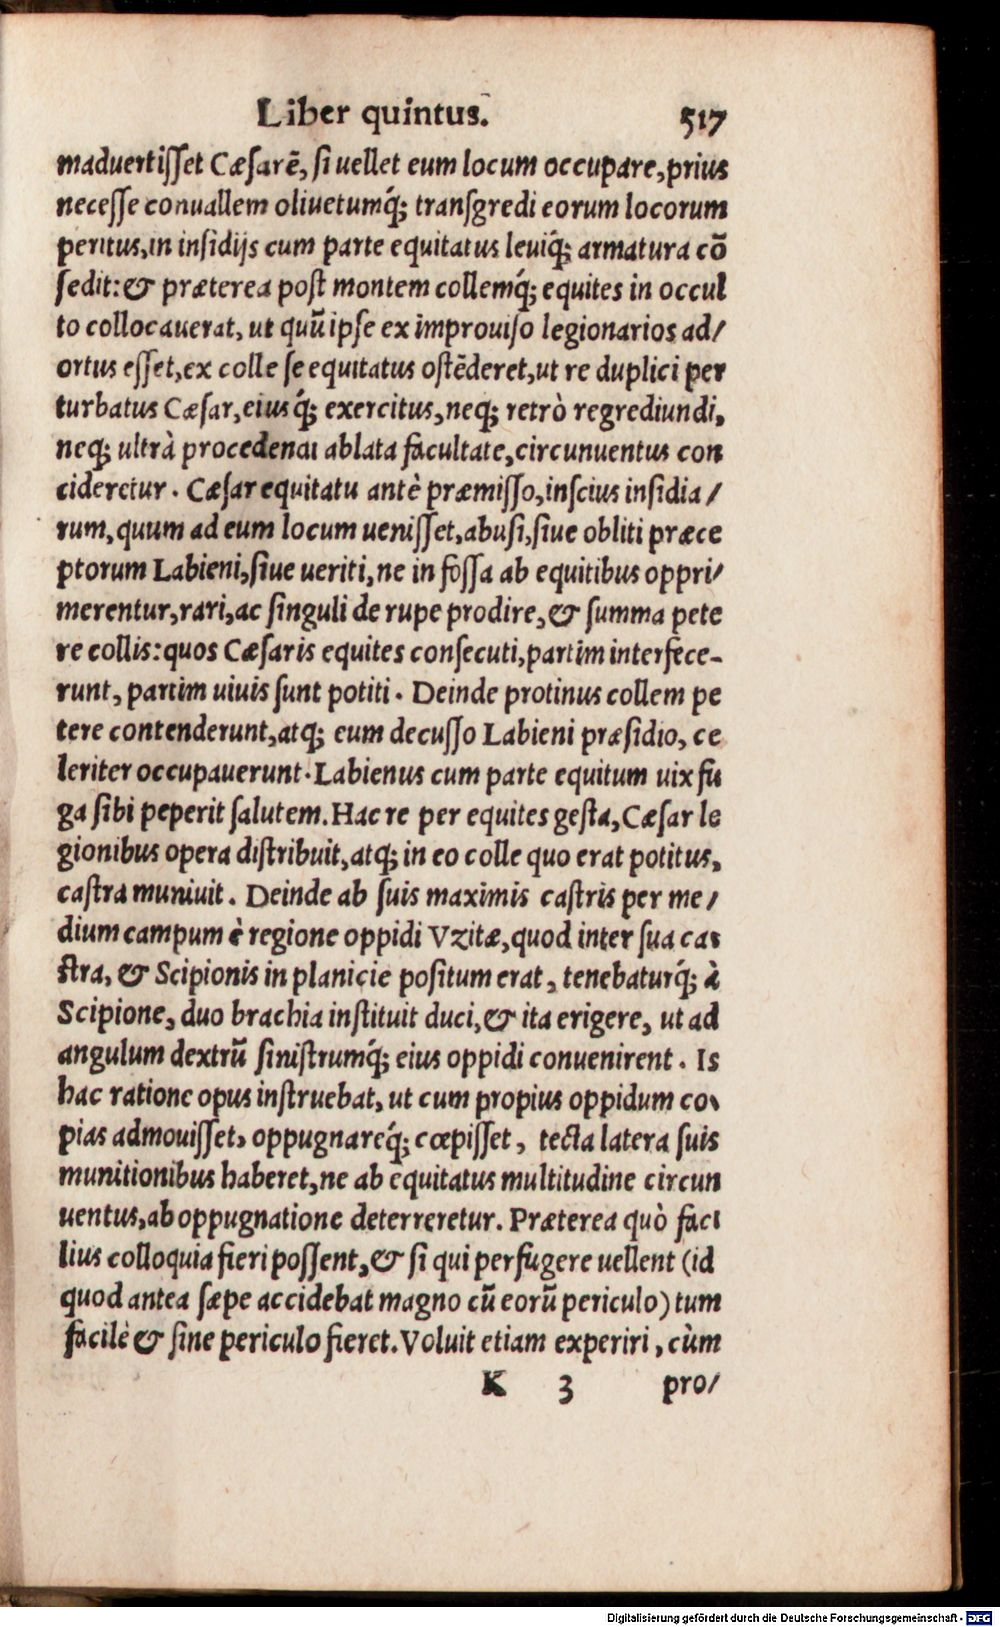 Liber quintus. 517
maduertiſſet Cæſarē, ſi uellet eum locum occupare, prius
neceſſe conuallem oliuetumq́; tranſgredi eorum locorum
peritus, in inſidijs cum parte equitatus leuiq́; armatura cō
ſedit: & præterea poſt montem collemq́; equites in occul
to collocauerat, ut quū ipſe ex improuiſo legionarios ad/
ortus eſſet, ex colle ſe equitatus oſtēderet, ut re duplici per
turbatus Cæſar, eiusq́; exercitus, neq; retrò regrediundi,
neq; ultrà procedendi ablata facultate, circunuentus con
cideretur. Cæſar equitatu antè præmiſſo, inſcius inſidia/
rum, quum ad eum locum ueniſſet, abuſi, ſiue obliti præce
ptorum Labieni, ſiue ueriti, ne in foſſa ab equitibus oppri/
merentur, rari, ac ſinguli de rupe prodire, & ſumma pete
re collis: quos Cæſaris equites conſecuti, partim interfece-
runt, partim uiuis ſunt potiti. Deinde protinus collem pe
tere contenderunt, atq; eum decuſſo Labieni præſidio, ce
leriter occupauerunt. Labienus cum parte equitum uix fu
ga ſibi peperit ſalutem. Hac re per equites geſta, Cæſar le
gionibus opera diſtribuit, atq; in eo colle quo erat potitus,
caſtra muniuit. Deinde ab ſuis maximis caſtris per me/
dium campum è regione oppidi Vzitæ, quod inter ſua ca/
ſtra, & Scipionis in planicie poſitum erat, tenebaturq́; à
Scipione, duo brachia inſtituit duci, & ita erigere, ut ad
angulum dextrū ſiniſtrumq́; eius oppidi conuenirent. Is
hac ratione opus inſtruebat, ut cum propius oppidum co/
pias admouiſſet, oppugnareq́; cœpiſſet, tecta latera ſuis
munitionibus haberet, ne ab equitatus multitudine circun
uentus, ab oppugnatione deterreretur. Præterea quò faci
lius colloquia fieri poſſent, & ſi qui perfugere uellent (id
quod antea ſæpe accidebat magno cū eorū periculo) tum
facilè & ſine periculo fieret. Voluit etiam experiri, cùm
K 3 pro/
Digitalisierung gefördert durch die Deutsche Forschungsgemeinschaft - DFG